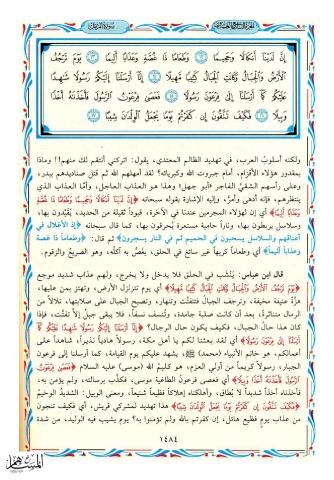 إِنَّ لَدَيْنَا أَنكَالًا وَجَحِيمًا ١٢ وَطَعَامًا ذَا غُصَّةٍ وَعَذَابًا أَلِيمًا ١٣ يَوْمَ تَرْجُفُ
الْأَرْضُ وَالْجِبَالُ وَكَانَتِ الْجِبَالُ كَثِيبًا مَّهِيلًا ١٤ إِنَّا أَرْسَلْنَا إِلَيْكُمْ رَسُولًا شَاهِدًا
عَلَيْكُمْ كَمَا أَرْسَلْنَا إِلَى فِرْعَوْنَ رَسُولًا ١٥ فَعَصَى فِرْعَوْنُ الرَّسُولَ فَأَخَذْنَاهُ أَخْذًا
وَبِيلًا ١٦ فَكَيْفَ تَتَّقُونَ إِن كَفَرْتُمْ يَوْمًا يَجْعَلُ الْوِلْدَانَ شِيبًا ١٧
ولكنه أسلوبُ العرب، في تهديد الظالم المعتدي، يقول: اتركني أنتقم لك منهم!! وماذا
بمقدور هؤلاء الأقزام، أمام جبروت الله وكبريائه؟ لقد أمهلهم الله ثم قتل صناديدهم ببدر،
وعلى رأسهم الشقيُّ الفاجر «أبو جهل» وهذا هو العذاب العاجل، وأمَّا العذاب الذي
ينتظرهم، فإنه أدهى وأمرُّ، وإليه الإشارة بقوله سبحانه ﴿إِنَّ لَدَيْنَا أَنكَالًا وَجَحِيمًا وَطَعَامًا ذَا غُصَّةٍ
وَعَذَابًا أَلِيمًا﴾ أي إن لهؤلاء المجرمين عندنا في الآخرة، قيوداً ثقيلة من الحديد، يُقيَّدون بها،
وسلاسل يربطون بها، وناراً حامية مستعرة يُحرقون بها، كما قال سبحانه ﴿إذ الأغلال في
أعناقهم والسلاسل يسحبون في الحميم ثم في النار يسجرون﴾ ثم قال: ﴿وطعاماً ذا غصة
وعذاباً أليماً﴾ أي وطعاماً كريهاً غير سائغ في الحلق، يَغُصُّ به آكله، وهو الضريع والزقوم.
قال ابن عباس: يَنْشَب في الحلق فلا يدخل ولا يخرج، ولهم عذاب شديد موجع
﴿يَوْمَ تَرْجُفُ الْأَرْضُ وَالْجِبَالُ وَكَانَتِ الْجِبَالُ كَثِيبًا مَّهِيلًا﴾ أي يوم تتزلزل الأرض، وتهتز بمن عليها،
هزَّة عنيفة مخيفة، وترجف الجبال فتتفتَّت وتنهار، وتصبح الجبال على صلابتها، تلالاً من
الرمال متناثرةً، بعد أن كانت صلبة جامدة، وتُنسف نسفاً، فلا يبقى جبلٌ إلاَّ تفتَّت، فإذا
كان هذا حالَ الجبال، فكيف يكون حال الرجال؟ ﴿إِنَّا أَرْسَلْنَا إِلَيْكُمْ رَسُولًا شَاهِدًا عَلَيْكُمْ كَمَا
أَرْسَلْنَا إِلَى فِرْعَوْنَ رَسُولًا﴾ أي لقد بعثنا لكم يا أهل مكة، رسولاً هادياً نذيراً، شاهداً على
أعمالكم، هو خاتم الأنبياء (محمد) ﷺ، يشهد عليكم يوم القيامة، كما أرسلنا إلى فرعون
الجبار، رسولاً كريماً من أولي العزم، هو كليمُ الله (موسى) عليه السلام ﴿فَعَصَى فِرْعَوْنُ
الرَّسُولَ فَأَخَذْنَاهُ أَخْذًا وَبِيلًا﴾ أي فعصى فرعونُ الطاغية موسى، فكذَّب برسالته، ولم يؤمن به،
فأخذناه أخذاً شديداً لا يُطاق، وأهلكناه إهلاكاً فظيعاً شنيعاً، ومعنى الوبيل: الشديدُ الوخيمُ
﴿فَكَيْفَ تَتَّقُونَ إِن كَفَرْتُمْ يَوْمًا يَجْعَلُ الْوِلْدَانَ شِيبًا﴾ هذا تهديد لمشركي قريش، أي فكيف تنجون
من عذاب يوم فظيع هائل، إن كفرتم بالله ولم تؤمنوا به؟ يوم يشيب فيه الوليد، من شدة
١٤٨٤